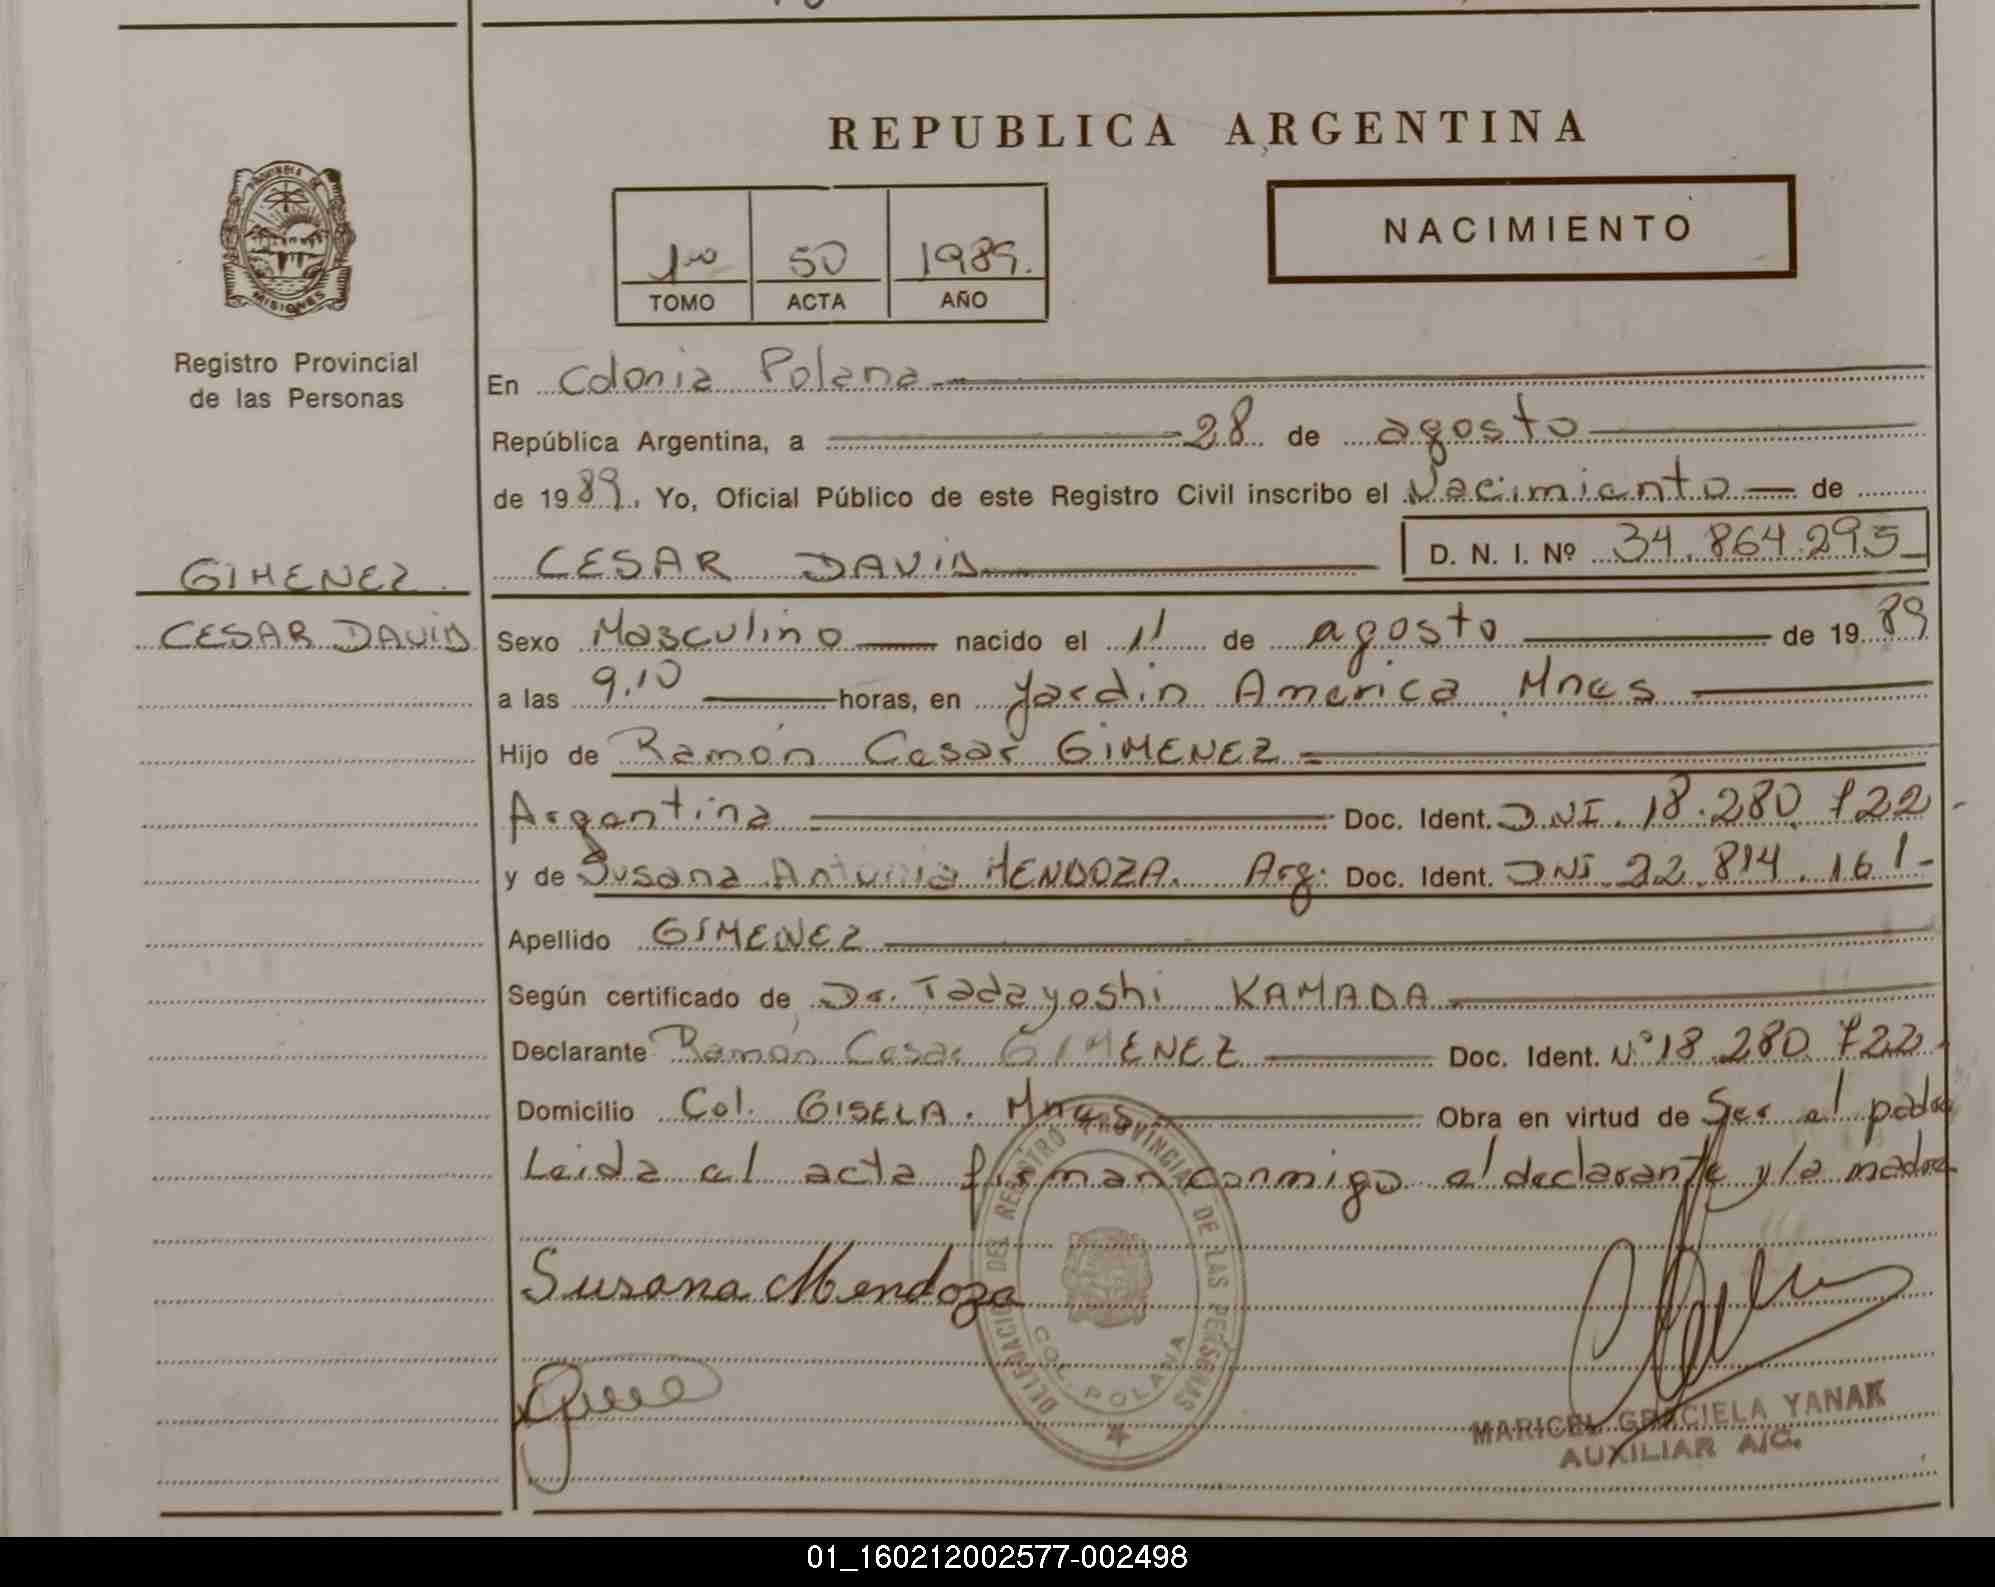 REPUBLICA ARGENTINA
NACIMIENTO
1ro 50 1989.
TOMO ACTA AÑO
PROVINCIA DE
MISIONES
Registro Provincial
de las Personas
GIMENEZ
CESAR DAVID
En Colonia Polana
República Argentina, a 28 de agosto
de 1989. Yo, Oficial Público de este Registro Civil inscribo el Nacimiento de
CESAR DAVID D. N. I. Nº 34.864.295
Sexo Masculino nacido el 11 de agosto de 1989
a las 9,10 horas, en Jardin America Mnes
Hijo de Ramón Cesar GIMENEZ
Argentina Doc. Ident. DNI. 18.280.722
y de Susana Antonia MENDOZA. Arg: Doc. Ident. DNI 22.814.161-
Apellido GIMENEZ
Según certificado de Dr. Tadayoshi KAMADA
Declarante Ramón Cesar GIMENEZ Doc. Ident. Nº 18.280.722.
Domicilio Col. GISELA. Mnes Obra en virtud de Ser el padre
Leida el acta firman conmigo el declarante y la madre
Susana Mendoza
DELEGACION DEL REGISTRO PROVINCIAL DE LAS PERSONAS
COL. POLANA
MARICEL GRACIELA YANAK
AUXILIAR A/C.
01_160212002577-002498